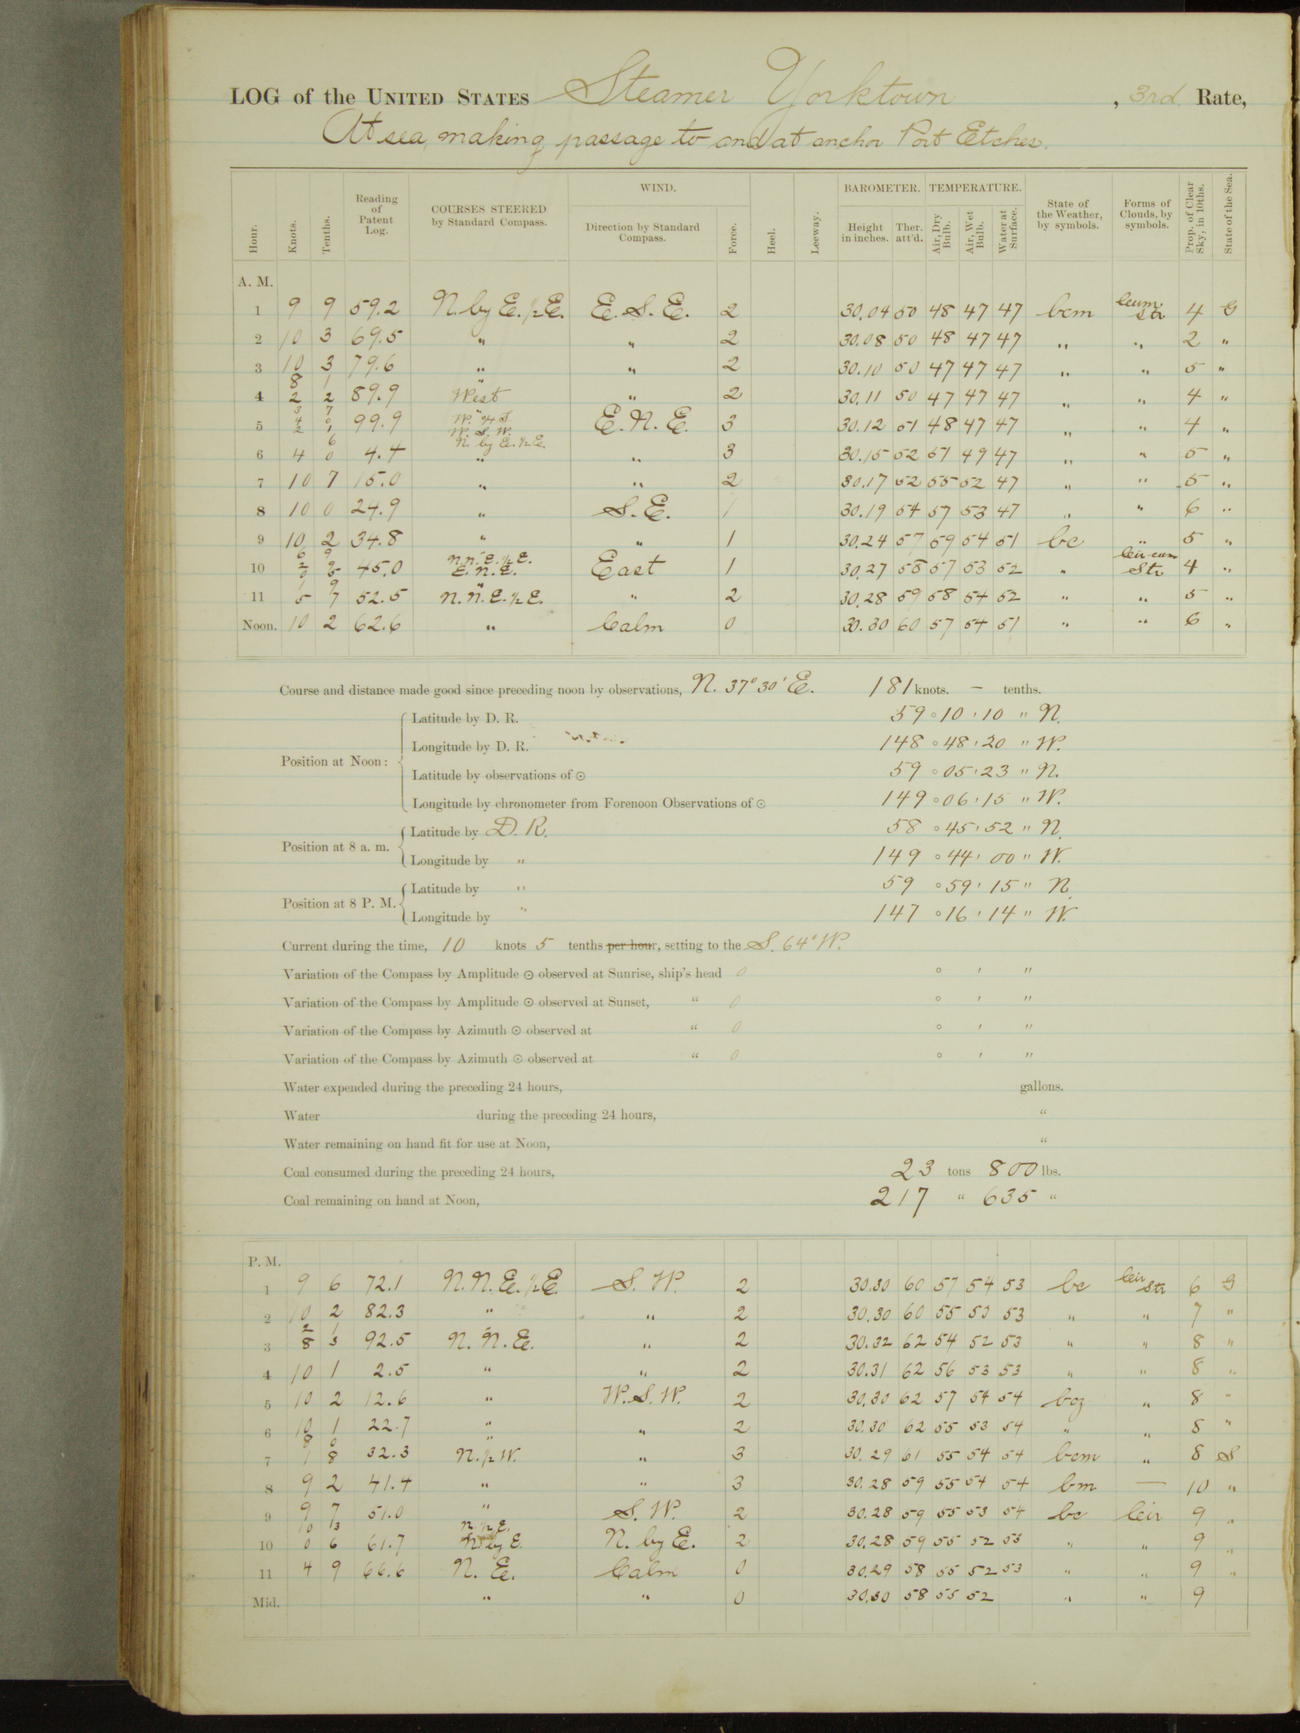 LOG of the UNITED STATES Steamer Yorktown, 3rd Rate,
At sea, making passage to and at anchor Port Etches.
Hour. Knots. Tenths. Reading of Patent Log. COURSES STEERED by Standard Compass. WIND. Direction by Standard Compass. Force. Heel. Leeway. BAROMETER. Height in inches. Ther. att'd. TEMPERATURE. Air, Dry Bulb. Air, Wet Bulb. Water at Surface. State of the Weather, by symbols. Forms of Clouds, by symbols. Prop. of Clear Sky, in 10ths. State of the Sea.
A. M.
1 9 9 59.2 N. by E. ½ E. E. S. E. 2 30.04 50 48 47 47 bcm Cum Str 4 G
2 10 3 69.5 " " 2 30.08 50 48 47 47 " " 2 "
3 10 3 79.6 " " 2 30.10 50 47 47 47 " " 5 "
8 1 "
4 2 2 89.9 West " 2 30.11 50 47 47 47 " " 4 "
5 99.9 W. S. W. E. N. E. 3 30.12 51 48 47 47 " " 4 "
N. by E. ½ E.
6 4 0 4.4 " " 3 30.15 52 51 49 47 " " 5 "
7 10 7 15.0 " " 2 30.17 52 55 52 47 " " 5 "
8 10 0 24.9 " S. E. 1 30.19 54 57 53 47 " " 6 "
9 10 2 34.8 " " 1 30.24 57 59 54 51 bc " 5 "
6 9 N.N.E. ½ E.
10 45.0 E.N.E. East 1 30.27 58 57 53 52 " Cir-cum Str 4 "
1 9 "
11 5 7 52.5 N.N.E. ½ E. " 2 30.28 59 58 54 52 " " 5 "
Noon. 10 2 62.6 " Calm 0 30.30 60 57 54 51 " " 6 "
Course and distance made good since preceding noon by observations, N. 37° 30' E. 181 knots. — tenths.
Position at Noon:
Latitude by D. R. 59 ° 10 ' 10 " N.
Longitude by D. R. 148 ° 48 ' 20 " W.
Latitude by observations of ⊙ 59 ° 05 ' 23 " N.
Longitude by chronometer from Forenoon Observations of ⊙ 149 ° 06 ' 15 " W.
Position at 8 a. m.
Latitude by D. R. 58 ° 45 ' 52 " N.
Longitude by " 149 ° 44 ' 00 " W.
Position at 8 P. M.
Latitude by " 59 ° 59 ' 15 " N.
Longitude by " 147 ° 16 ' 14 " W.
Current during the time, 10 knots 5 tenths per hour, setting to the S. 64° W.
Variation of the Compass by Amplitude ⊙ observed at Sunrise, ship's head 0 ° ' "
Variation of the Compass by Amplitude ⊙ observed at Sunset, " 0 ° ' "
Variation of the Compass by Azimuth ⊙ observed at " 0 ° ' "
Variation of the Compass by Azimuth ⊙ observed at " 0 ° ' "
Water expended during the preceding 24 hours, gallons.
Water during the preceding 24 hours, "
Water remaining on hand fit for use at Noon, "
Coal consumed during the preceding 24 hours, 23 tons 800 lbs.
Coal remaining on hand at Noon, 217 " 635 "
P. M.
1 9 6 72.1 N. N. E. ½ E. S. W. 2 30.30 60 57 54 53 bc Cir Str 6 G
2 10 2 82.3 " " 2 30.30 60 55 53 53 " " 7 "
2 1 "
3 8 3 92.5 N. N. E. " 2 30.32 62 54 52 53 " " 8 "
4 10 1 2.5 " " 2 30.31 62 56 53 53 " " 8 "
5 10 2 12.6 " W. S. W. 2 30.30 62 57 54 54 bcz " 8 "
6 10 1 22.7 " " 2 30.30 62 55 53 54 " " 8 "
8 0 "
7 1 8 32.3 N. ½ W. " 3 30.29 61 55 54 54 bcm " 8 S
8 9 2 41.4 " " 3 30.28 59 55 54 54 bm — 10 "
9 9 7 51.0 " S. W. 2 30.28 59 55 53 54 bc Cir 9 "
N. ½ E.
10 0 6 61.7 N by E. N. by E. 2 30.28 59 55 52 53 " " 9 "
11 4 9 66.6 N. E. Calm 0 30.29 58 55 52 53 " " 9 "
Mid. " " 0 30.30 58 55 52 " " 9